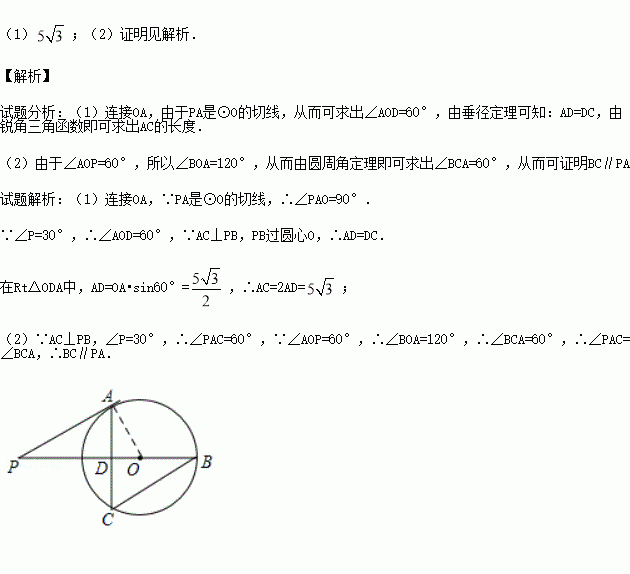 (1) 5√3 ;(2)证明见解析.
【解析】
试题分析:(1)连接OA,由于PA是⊙O的切线,从而可求出∠AOD=60°,由垂径定理可知:AD=DC,由
锐角三角函数即可求出AC的长度.
(2)由于∠AOP=60°,所以∠BOA=120°,从而由圆周角定理即可求出∠BCA=60°,从而可证明BC∥PA
试题解析:(1)连接OA,∵PA是⊙O的切线,∴∠PAO=90°.
∵∠P=30°,∴∠AOD=60°,∵AC⊥PB,PB过圆心O,∴AD=DC.
在Rt△ODA中,AD=OA•sin60°=5√3/2 ,∴AC=2AD=5√3 ;
(2)∵AC⊥PB,∠P=30°,∴∠PAC=60°,∵∠AOP=60°,∴∠BOA=120°,∴∠BCA=60°,∴∠PAC=
∠BCA,∴BC∥PA.
A
P D O B
C